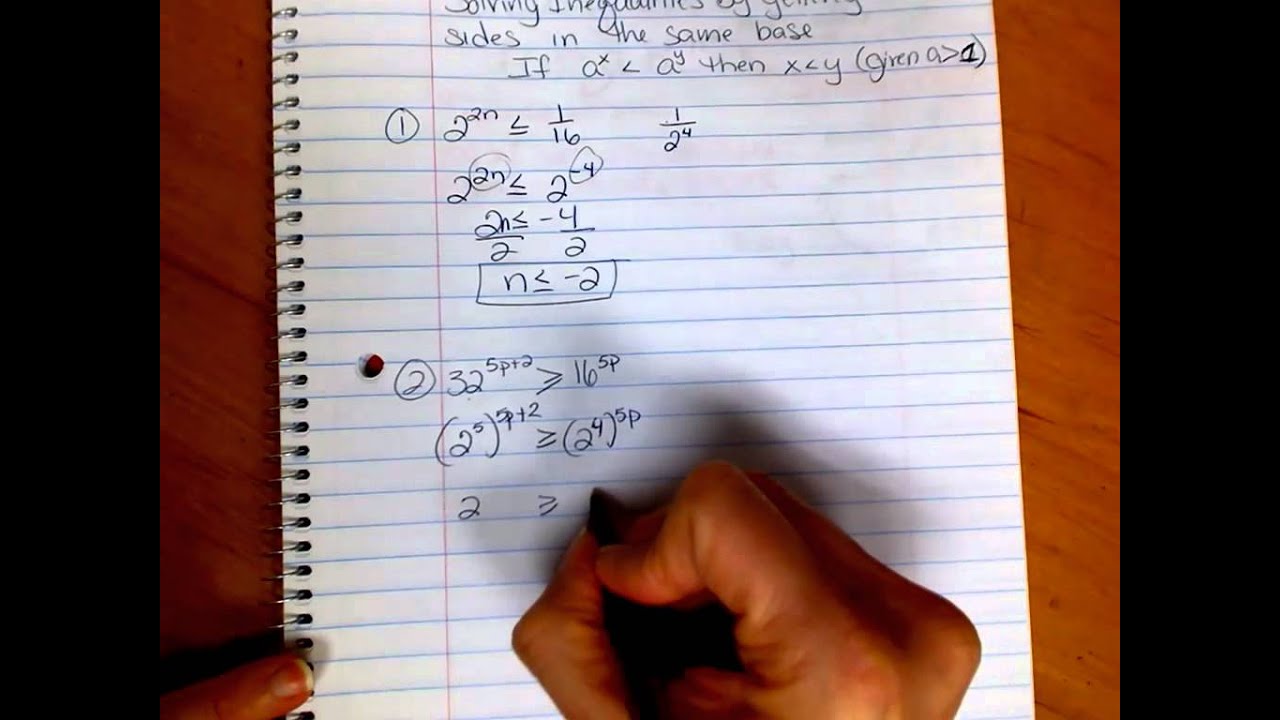 Solving Inequalities by getting
sides in the same base
If aˣ < aʸ then x<y (given a>1)
① 2²ⁿ ≤ 1/16 1/2⁴
2²ⁿ ≤ 2⁻⁴
2n/2 ≤ -4/2
n ≤ -2
② 32⁵ᵖ⁺² ≥ 16⁵ᵖ
(2⁵)⁵ᵖ⁺² ≥ (2⁴)⁵ᵖ
2 ≥